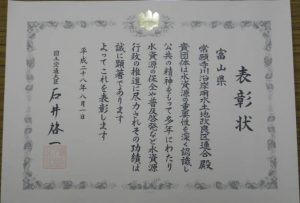 表彰状
富山県
常願寺川沿岸用水土地改良区連合 殿
貴団体は水資源の重要性を深く認識し
公共の精神をもって多年にわたり
水資源の保全や普及啓発など水資源
行政の推進に尽力されその功績は
誠に顕著であります
よってこれを表彰します
平成二十八年八月一日
国土交通大臣 石井啓一